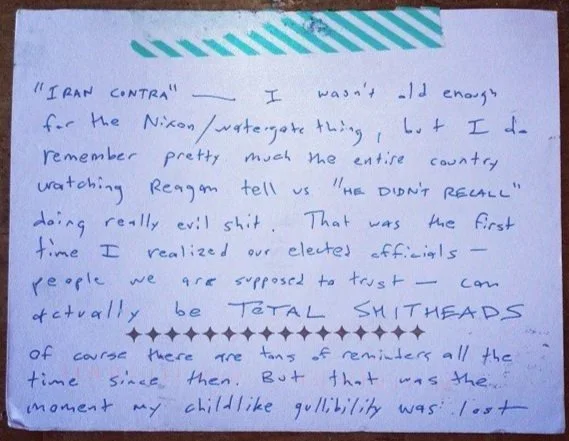 "IRAN CONTRA" — I wasn't old enough
for the Nixon/watergate thing, but I do
remember pretty much the entire country
watching Reagan tell us "HE DIDN'T RECALL"
doing really evil shit. That was the first
time I realized our elected officials —
people we are supposed to trust — can
actually be TOTAL SHITHEADS
of course there are tons of reminders all the
time since then. But that was the
moment my childlike gullibility was lost